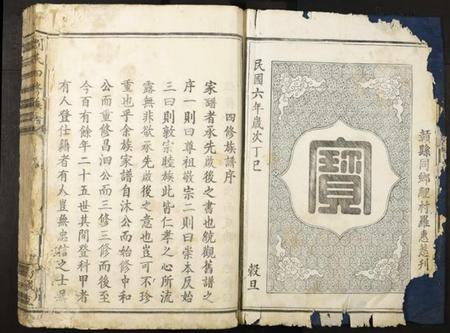 民國六年歲次丁巳
寶
穀旦
四修族譜序
家譜者承先啟後之書也統觀舊譜之
序一則曰尊祖敬宗二則曰崇本反始
三曰則敦宗睦族此皆仁孝之心所流
露無非敬承先啟後之意也豈可不珍
重也乎余族家譜自沐公而始修中和
公而重修昌泗公而三修三修而後至
今百有餘年二十五世其間登科甲者
有人登仕籍者有人豈無忠信之士